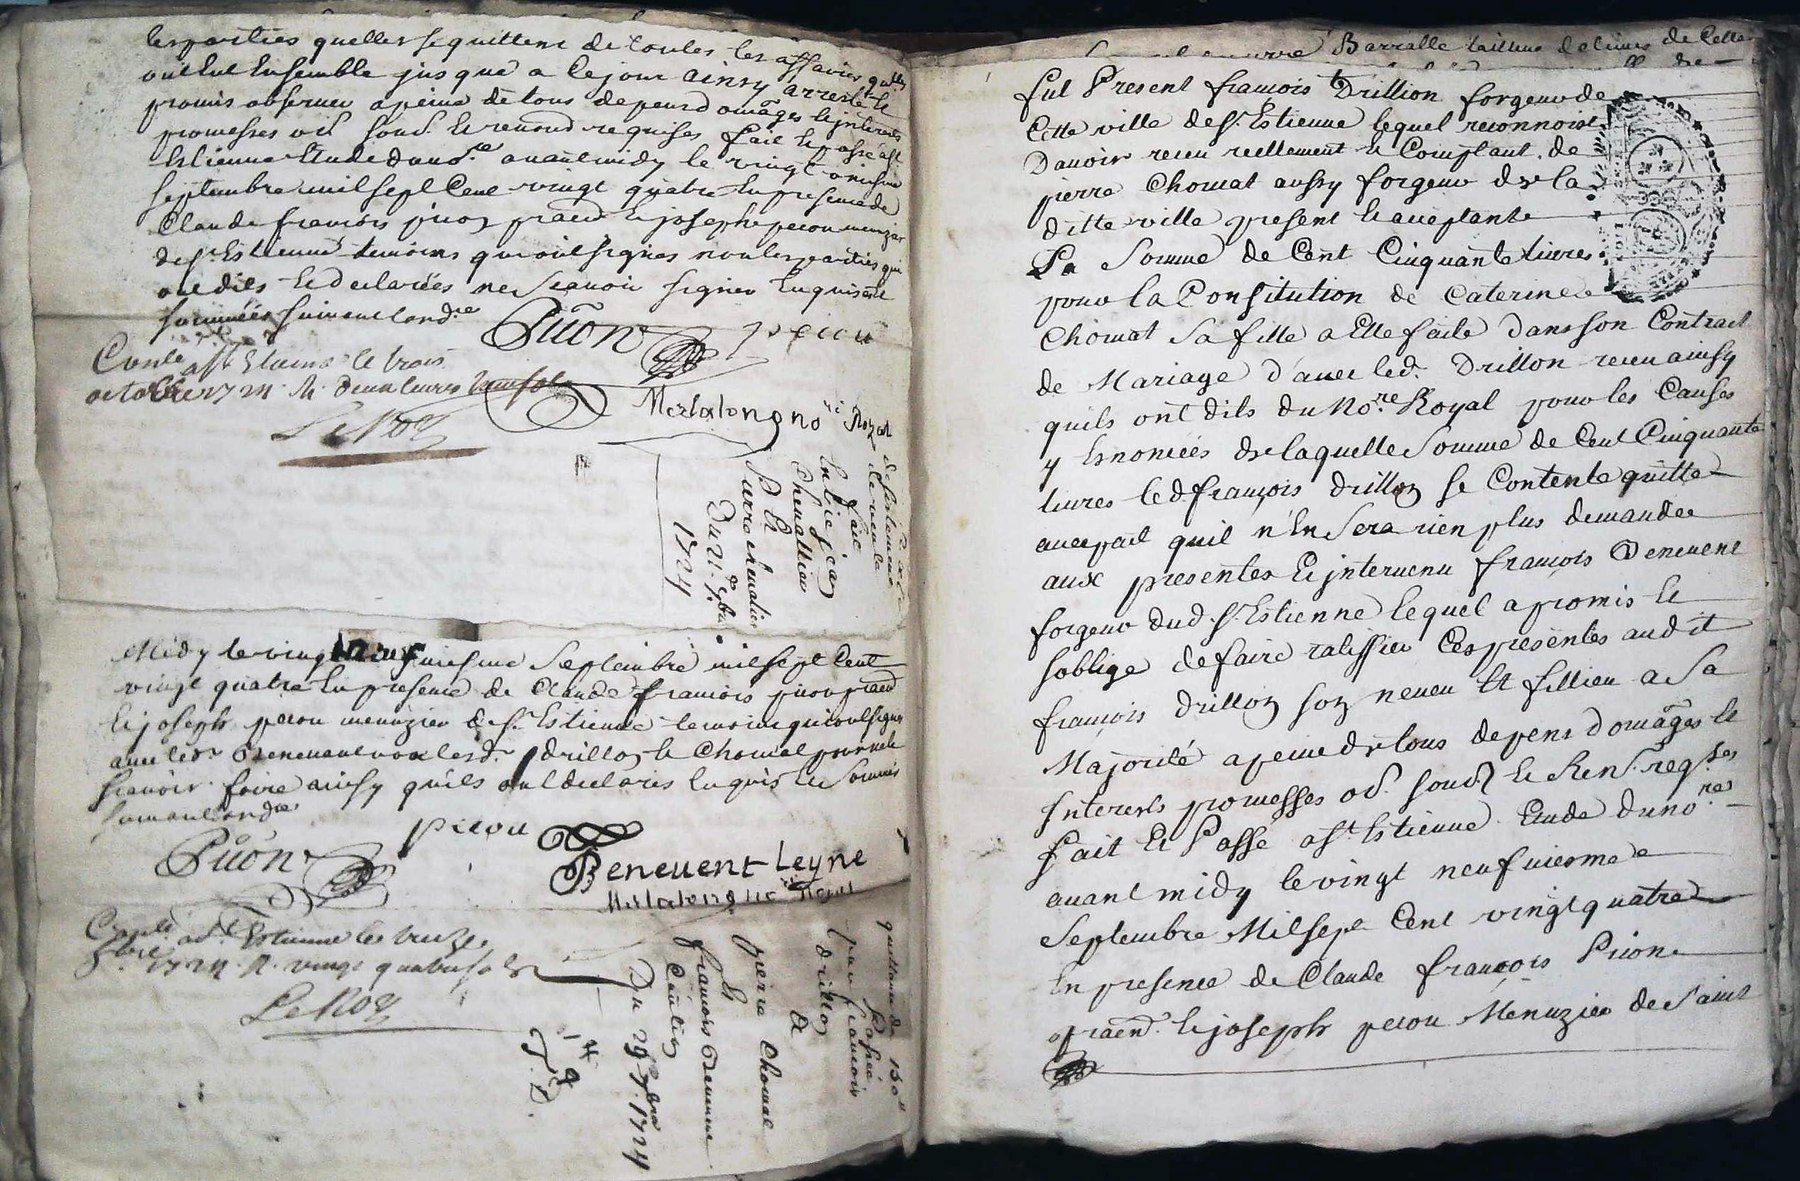 les parties quelles se quittent de toutes les affaires quelles
ont Eut Ensemble jusque a cejour ainsy arresté Et
promis observer a peine de tous depens domages Et jnterests
promesses obd soud Et renond requises fait Et passé a st
Estienne Etude du nore. avant midy le vingt
septembre mil sept Cent vingt quatre En presence de
Claude françois piion praend Et joseph peron menuzier
de st Estienne temoins qui ont signes non les parties qui
ont dits Et declarées ne scavoir signer Enquis Et
sommées suivant londre
Piion peron
Conlé a st Etienne le trois
octobre 1724 R. deux livres
LeRoy
Merlaton no re Royal
de vente
faitte
Chevallier
Et
pierre chevalier
Du 21e 7bre
1724
Midy le vingt neufviesme Septembre mil sept Cent
vingt quatre En presence de Claude françois piion praend
Et joseph peron menuzier de st Estienne temoins qui ont signes
avec led Benevent non lesd. drillon Et Chomat pour ne le
scavoir faire ainsy quils ont declarés Enquis Et Sommés
suivant londre
Piion peron
Benevent Leyne
Merlaton no re Royal
Conlé a st Estienne le treize
8bre 1724 R. vingt quatre sols
LeRoy
quittance de 150ll
Passée
par françois
drillon
A
pierre Chomat
Et
françois Benevent
Du 29e 7bre 1724
fut Present françois Drillion forgeur de
Cette ville de st Estienne lequel reconnoist
Davoir receu reellement Et Comptant de
pierre Chomat aussy forgeur de la
ditte ville present Et acceptant
La Somme de Cent Cinquante livres
pour la Constitution de Caterine
Chomat sa fille a Elle faite dans son Contract
de Mariage d'avec led. Drillon receu ainsy
quils ont dits du Nore Royal pour les Causes
y Ennoncées de laquelle Somme de Cent Cinquante
livres led françois drillon se Contente quitte
avec pact quil n'En sera rien plus demandée
aux presentes Et jntervenu françois Benevent
forgeur dud. st Estienne lequel a promis Et
soblige de faire ratiffier Ces presentes audit
françois drillon son neveu Et fillieu a Sa
Majorité a peine de tous depens domages Et
Interests promesses obd. soud Et Ren. reqses
fait Et Passé a st Estienne Etude du nore
avant midy le vingt neufviesme
Septembre Mil sept Cent vingt quatre
En presence de Claude françois Piion
praend. Et joseph peron Menuzier de Saint